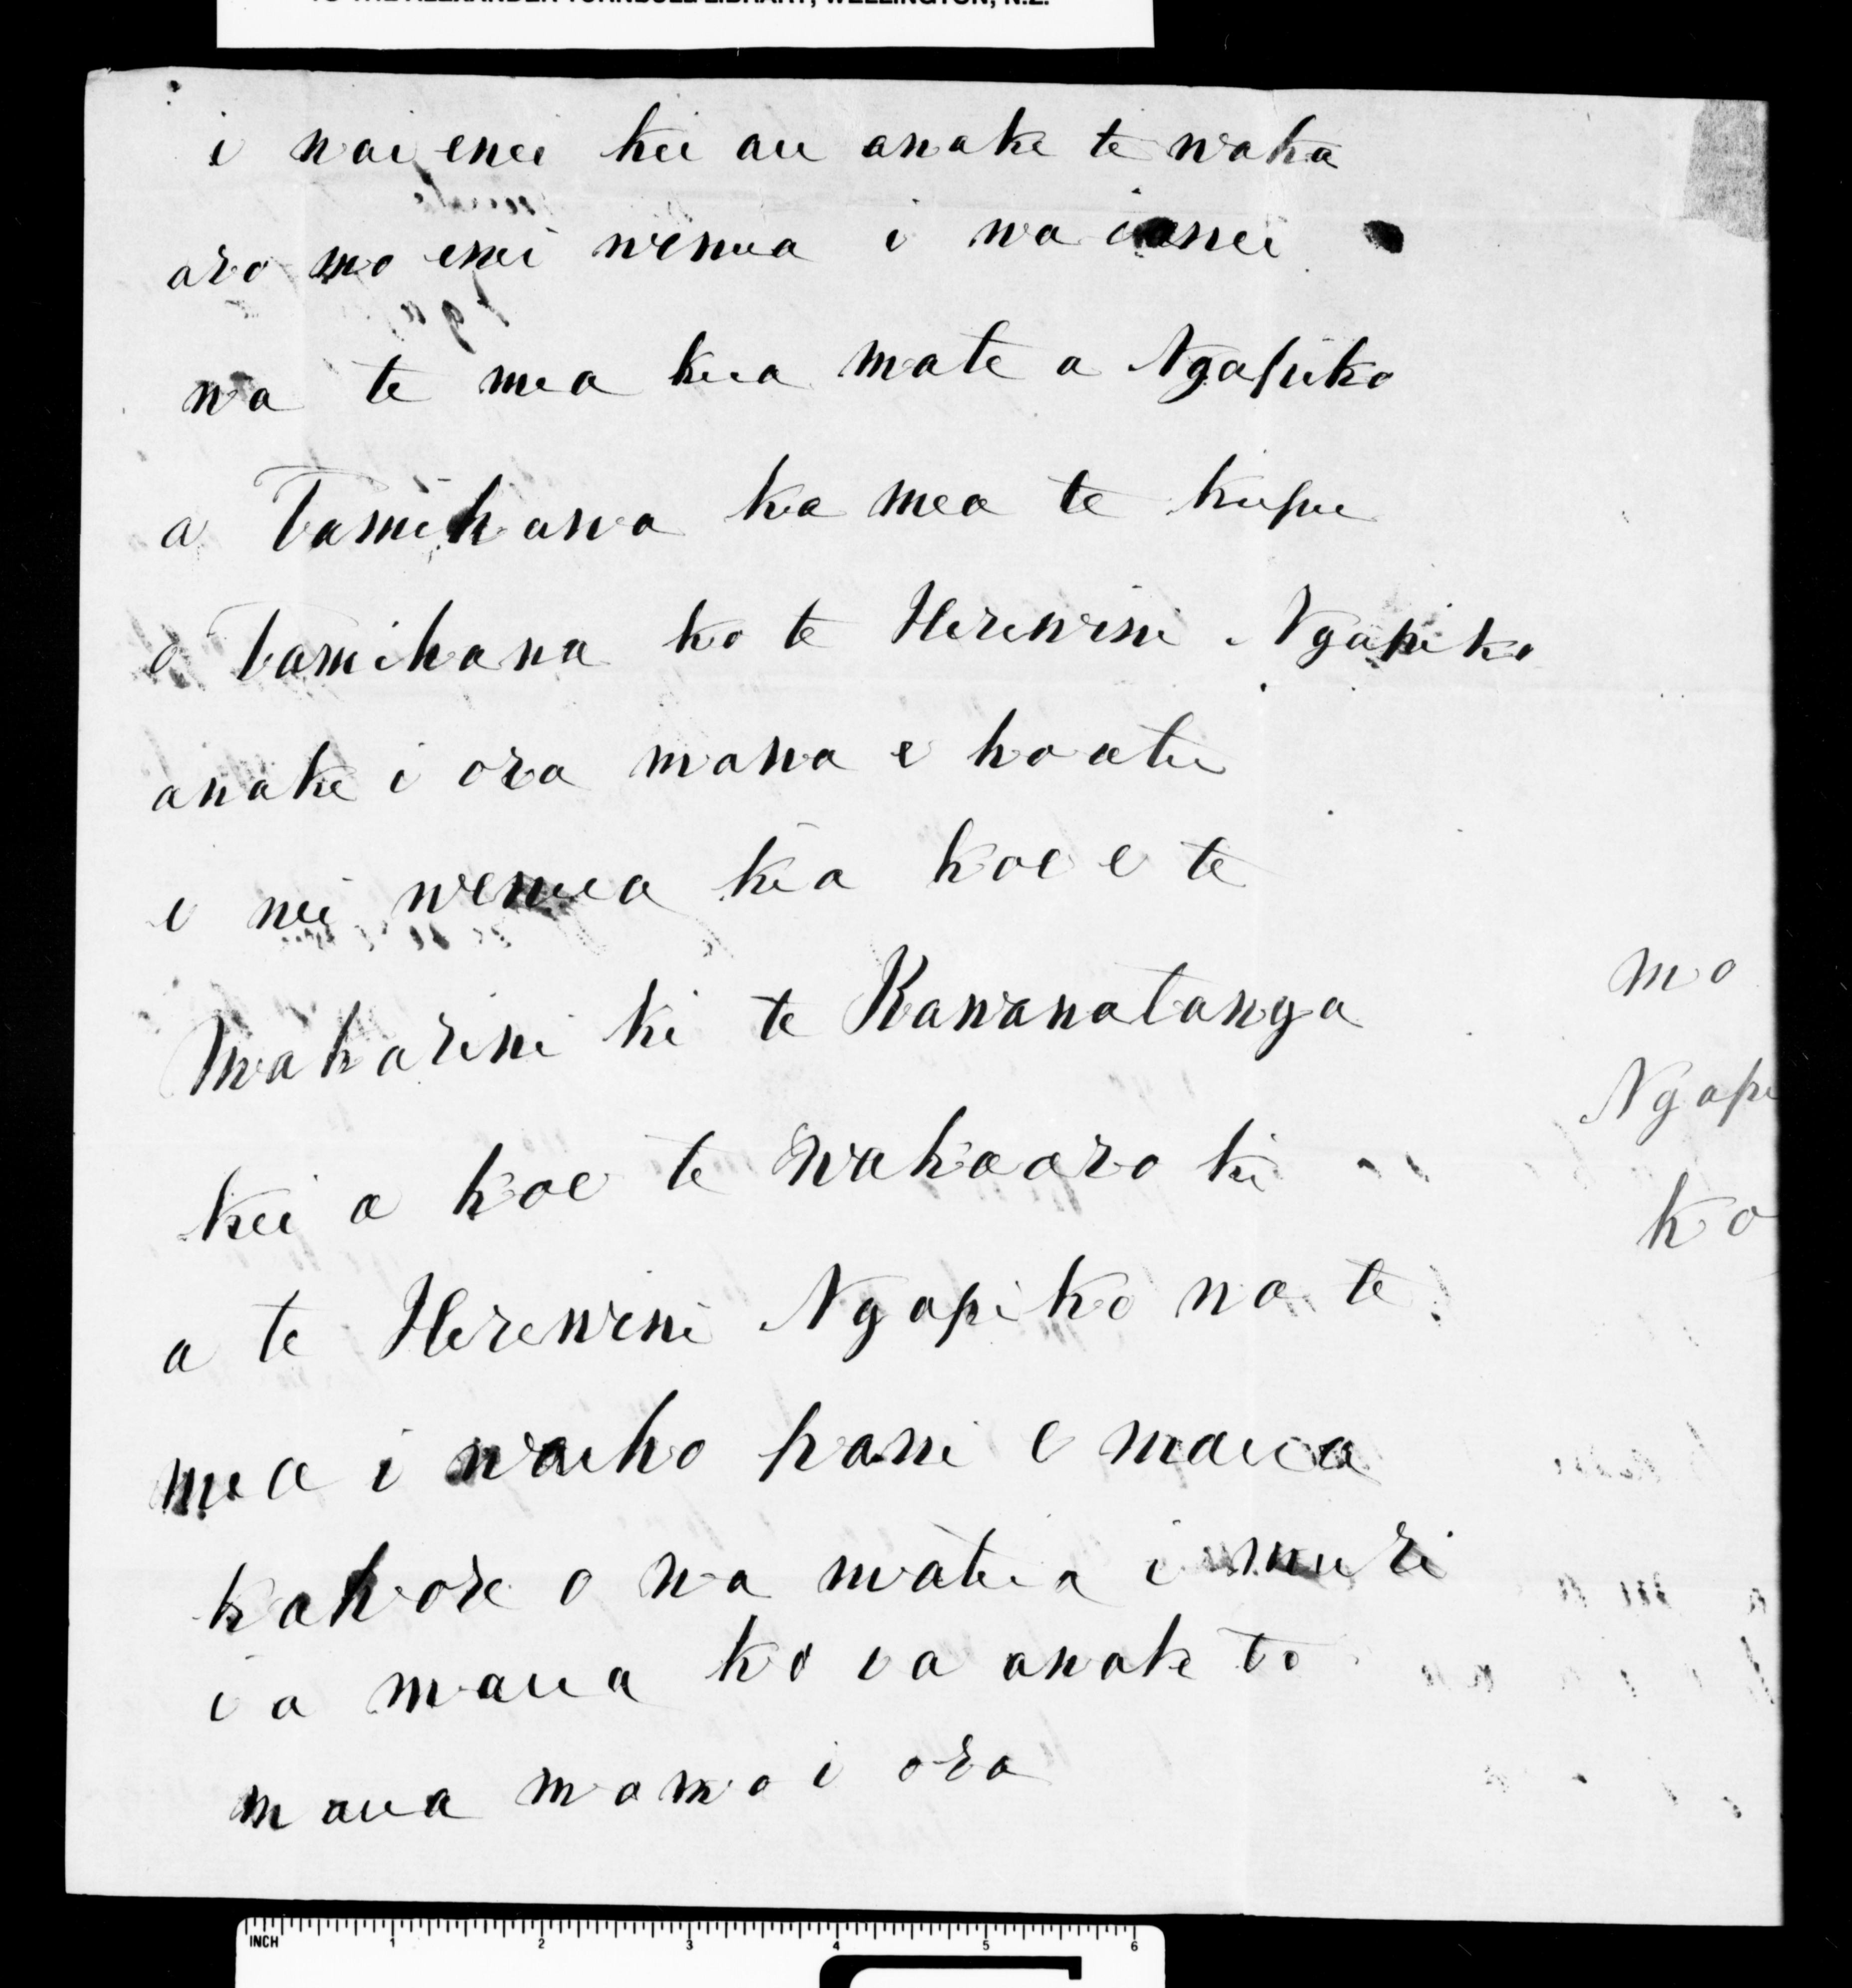 TO THE ALEXANDER TURNBULL LIBRARY, WELLINGTON, N.Z.
i nai enei kei au anake te waka
aro mo enei wenua i na ianei
na te mea kua mate a Ngapiko
a Tamihana ka mea te kupu
o Tamihana ko te Herewini Ngapiko
anake i ora mana e hoatu
e nei wenua kia koe e te
Makarini ki te Kawanatanga
kei a koe te wakaaro ki
a te Herewini Ngapiko na te
mea i waiho pani e maua
kahore o na matua i muri
i a maua ko ia anake to
maua momo i ora
mo
Ngapi
ko
INCH 1 2 3 4 5 6